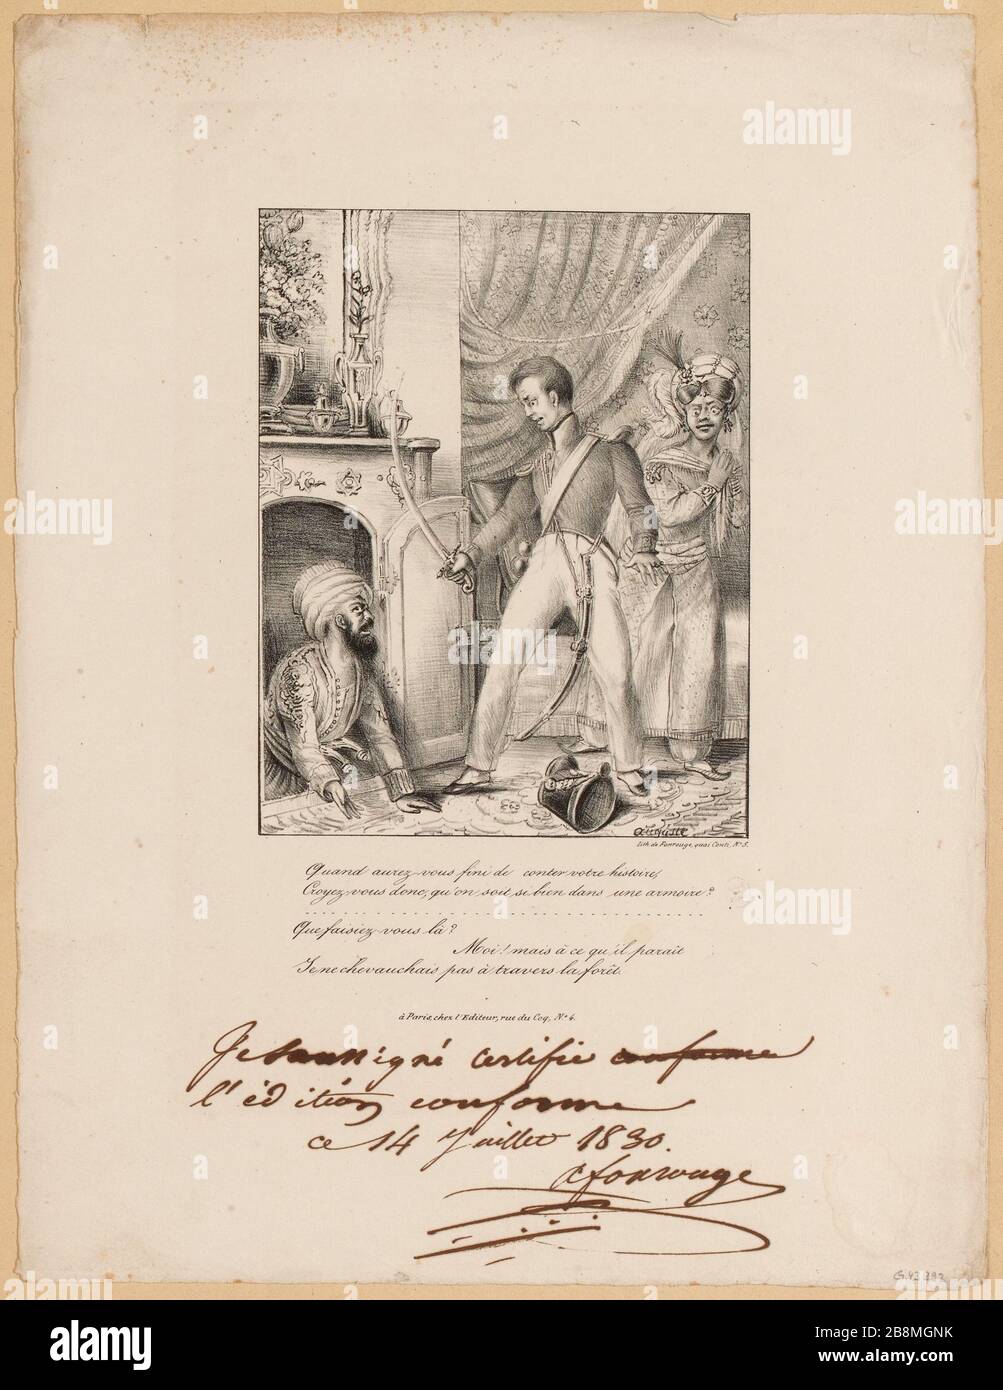 Auguste
Lith de Fonrouge, quai Conti, N° 5.
Quand aurez-vous fini de conter votre histoire,
Croyez-vous donc, qu'on soit si bien dans une armoire?
Que faisiez-vous là?
Moi! mais à ce qu'il parait
Je ne chevauchais pas à travers la forêt.
à Paris, chez l'Editeur, rue du Coq, N° 4.
Je soussigné certifie conforme
l'édition conforme
ce 14 Juillet 1830.
Afonrouge
G.42.392
alamy
a
alamy
Image ID: 2B8MGNK
www.alamy.com